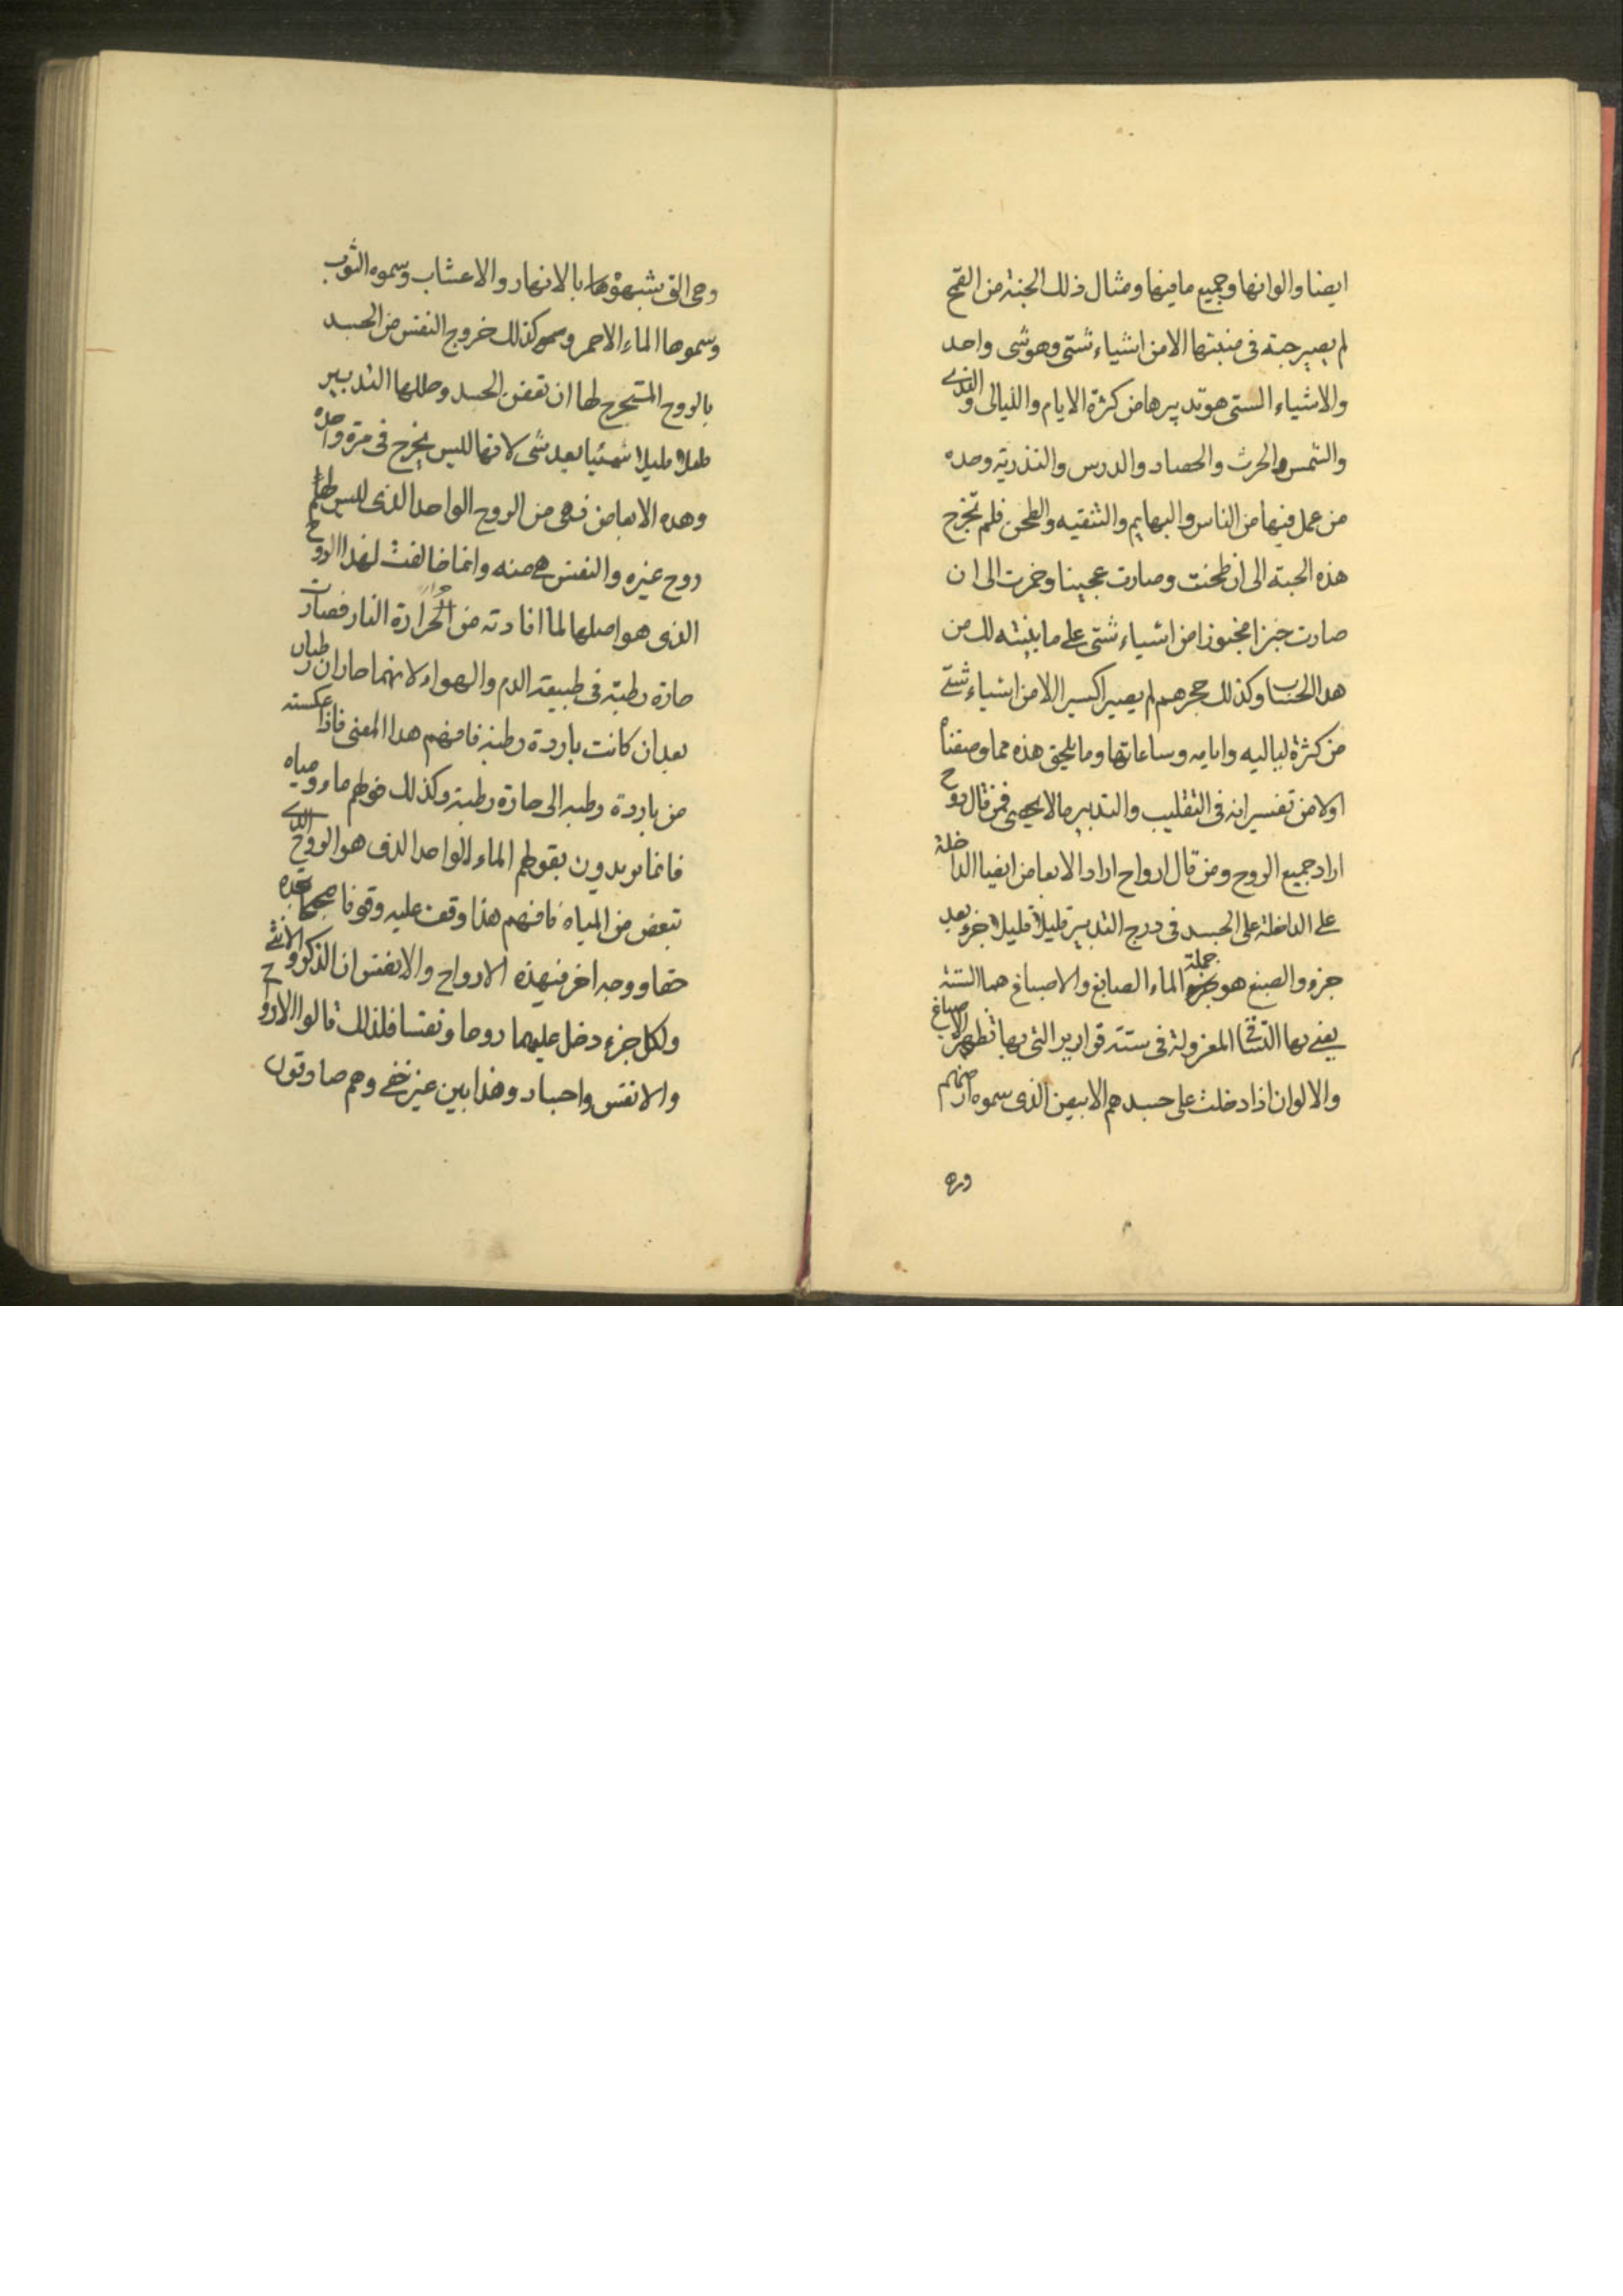 ايضا والوانها وجميع ما فيها ومثال ذلك الحبة من القمح
لم يصير حبة فى منبتها الا من اشياء شتى وهو شى واحد
والاشياء الستى هو تدبيرها من كثرة الايام والليالى والندى
والشمس والحرث والحصاد والدرس والتذرية وحده
من عمل فيها من الناس والبهايم والتنقيه والطحن فلم تخرج
هذه الحبة الى ان طحنت وصارت عجينا وخمرت الى ان
صارت خبزا مخبوزا من اشياء شتى على ما بينته لك من
هدا الحساب وكذلك حجرهم لم يصير اكسير الا من اشياء شتى
من كثرة لياليه وايامه وساعاتها وما يلحق هذه مما وصفناه
اولا من تفسيرانه فى التقليب والتدبير مالا يحصى فمن قال روح
اراد جميع الروح ومن قال ارواح اراد الابعاض ايضا الداخلة
على الداخلة على الجسد فى درج التدبير قليلا قليلا جزء بعد
جزء والصبغ هو جملة الماء الصابغ والاصباغ هما الستة
يعنى بها المعزولة فى ستة قوارير التى بها تطهر الاصباغ
والالوان اذا دخلت على جسدهم الابيض الذى سموه ارضهم
وره
وهى التى شبهوها بالانهار والاعشاب وسموه الثوب
وسموها الماء الاحمر وكذلك خروج النفس من الجسد
بالروح المستخرج لها ان تعفن الجسد وحللها التدبير
قليلا قليلا شيئا بعد شى لانها لليس يخرج فى مرة واحده
وهده الابعاض فهى من الروح الواحد الذى لليس لهم
روح غيره والنفس هى منه وانما خالفت لهدا الروح
الذى هو اصلها لما افادته من الحرارة النار فصارت
حارة رطبة فى طبيعة الدم والهواء لانهما حاران رطبان
بعد ان كانت باردة رطبة فافهم هدا المعنى فاذا عكسته
من باردة رطبه الى حارة رطبة وكذلك قولهم ماء ومياه
فانما يريدون بقولهم الماء الواحد الذى هو الروح الذى
تبعض من المياه فافهم هذا وقف عليه وقوفا صحيحا تجده
حقا ووجه اخر فى هذه الارواح والانفس ان الذكر والانثى
ولكل جزء دخل عليهما روحا ونفسا فلذلك قالوا الارواح
والانفس واجساد وهذا بين غير خفى وهم صادقون